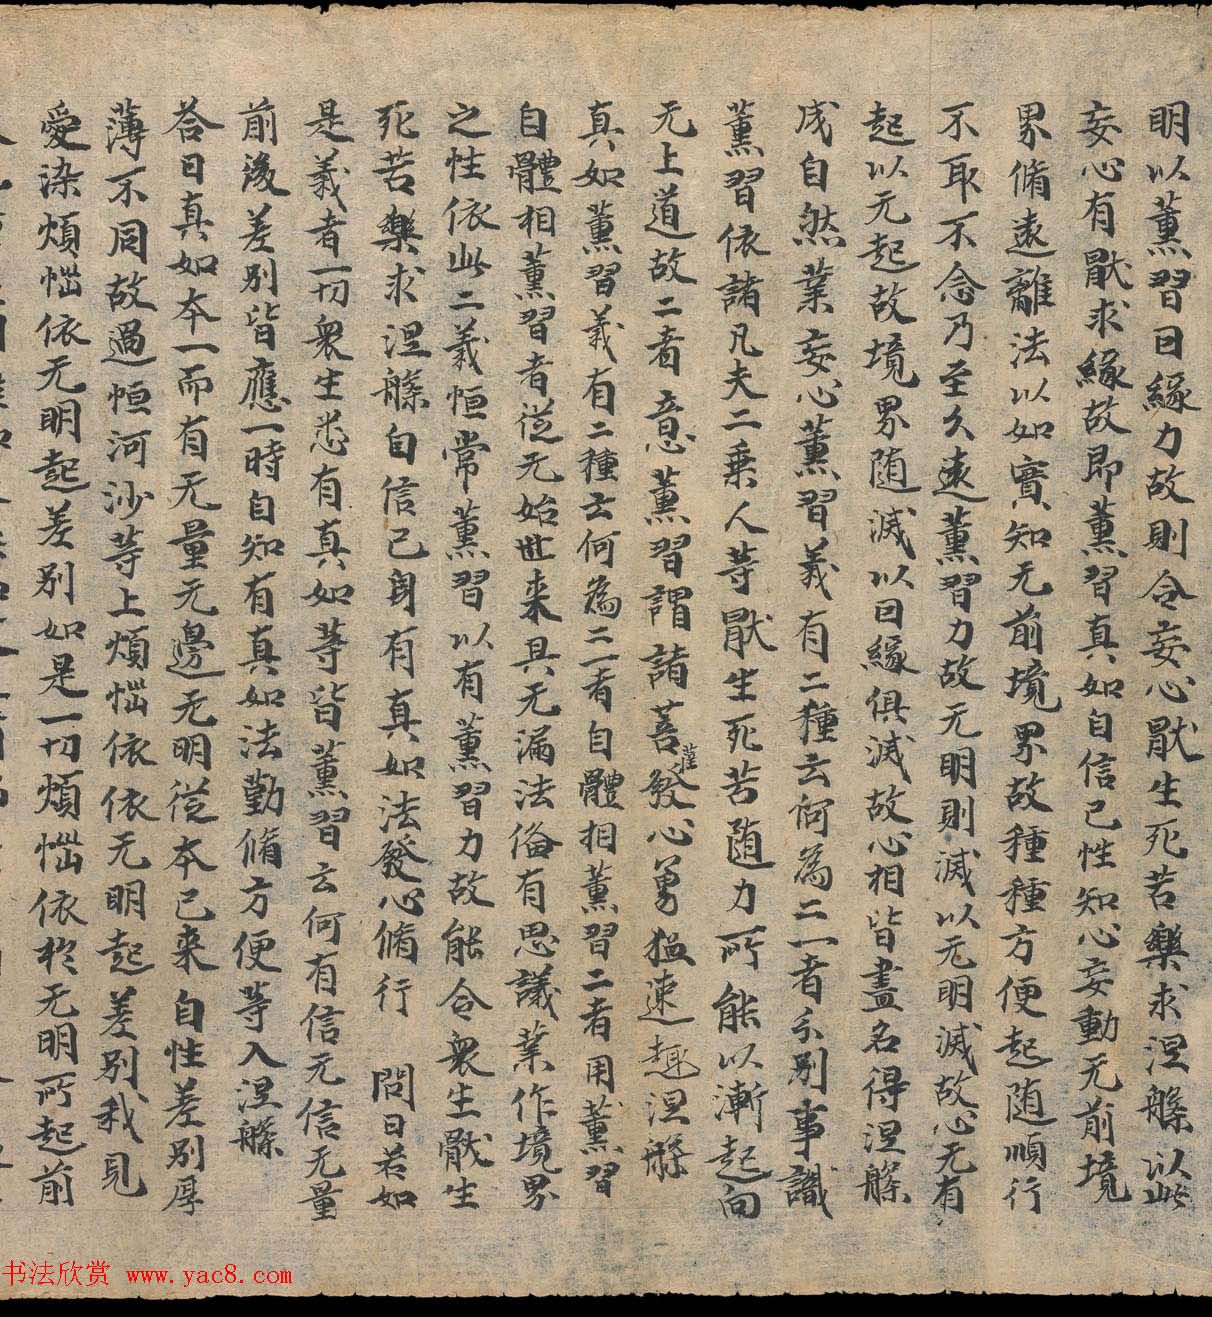 明以薰習因緣力故則令妄心猒生死苦樂求涅槃以此
妄心有猒求緣故即薰習真如自信己性知心妄動无前境
界脩遠離法以如實知无前境界故種種方便起随順行
不取不念乃至久遠薰習力故无明則滅以无明滅故心无有
起以无起故境界随滅以因緣俱滅故心相皆盡名得涅槃
成自然業妄心薰習義有二種云何為二一者分別事識
薰習依諸凡夫二乗人等猒生死苦随力所能以漸起向
无上道故二者意薰習謂諸菩薩發心勇猛速趣涅槃
真如薰習義有二種云何為二一者自體相薰習二者用薰習
自體相薰習者從无始世来具无漏法俻有思議業作境界
之性依此二義恒常薰習以有薰習力故能令衆生猒生
死苦樂求涅槃自信己身有真如法發心脩行 問曰若如
是義者一切衆生悉有真如等皆薰習云何有信无信无量
前後差別皆應一時自知有真如法勤脩方便等入涅槃
荅曰真如本一而有无量无邊无明從本已来自性差別厚
薄不同故過恒河沙等上煩惱依依无明起差別我見
愛染煩惱依无明起差別如是一切煩惱依於无明所起前
书法欣赏 www.yac8.com